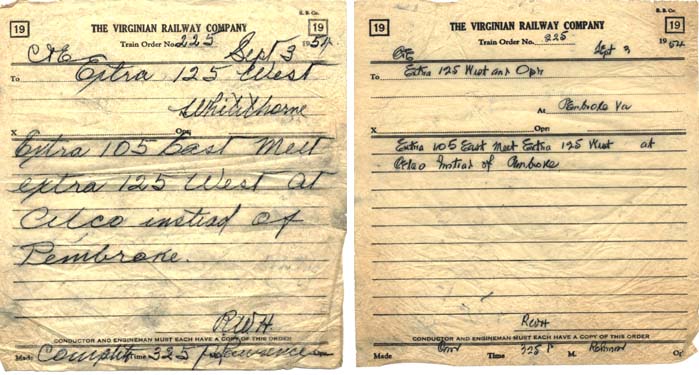 R. B. Co.
19 THE VIRGINIAN RAILWAY COMPANY 19
Train Order No. 225 Sept 3 1954
C&E
To Extra 125 West
Whitethorne
X Opr.
Extra 105 East Meet
extra 125 West at
Celco instead of
Pembroke.
RWH
CONDUCTOR AND ENGINEMAN MUST EACH HAVE A COPY OF THIS ORDER
Made Complete Time 325 P Lawrence Opr.
R. B. Co.
19 THE VIRGINIAN RAILWAY COMPANY 19
Train Order No. 225 Sept 3 1954
C&E
To Extra 125 West and Opr
At Pembroke Va
X Opr.
Extra 105 East Meet Extra 125 West at
Celco Instead of Pembroke
RWH
CONDUCTOR AND ENGINEMAN MUST EACH HAVE A COPY OF THIS ORDER
Made Com Time 325 P M. Opr